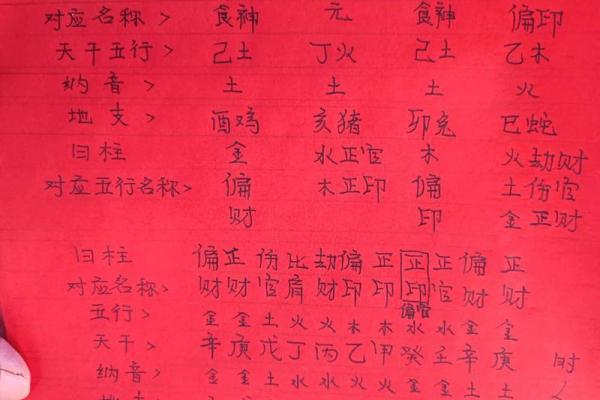 对应名称> 食神 元 食神 偏印
天干五行> 己土 丁火 己土 乙木
纳音> 土 土 土 火
地支> 酉鸡 亥猪 卯兔 巳蛇
日柱 金 水正官 木 火劫财
对应五行名称> 偏 木正印 偏 土伤官
财 印 金正财
日柱 偏 正 伤 比 劫 偏 正 正 正 偏 正
对应名称> 财 财 官 肩 财 印 印 印 官 财 财
偏官
五行> 金 金 土 火 火 木 木 水 水 金 金
天干> 辛 庚 戊 丁 丙 乙 甲 癸 壬 辛 庚 时
纳音> 金 金 土 水 水 火 火 金 金 土 土